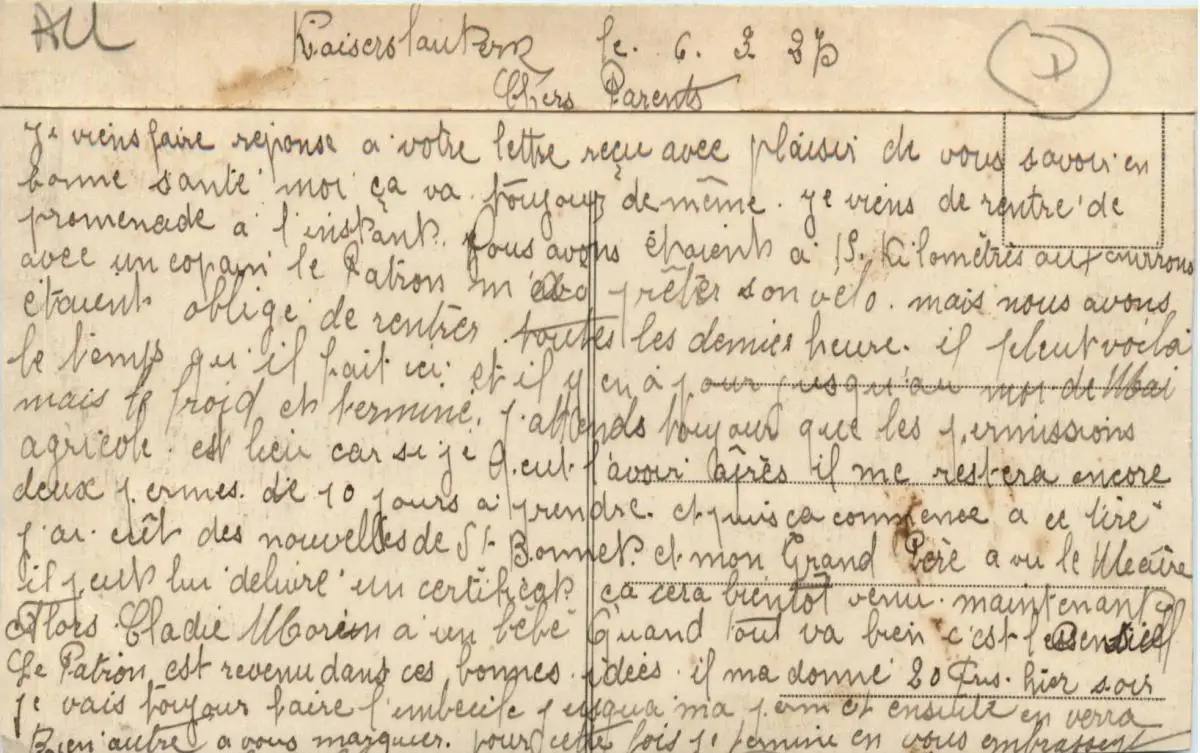 AU
Kaiserslautern le. 6. 3 27
D
Chers Parents
Je viens faire reponse a votre lettre reçu avec plaisir de vous savoir en
bonne santé moi ça va toujour de même. Je viens de rentré de
promenade a l'instant. Nous avons étaient a 15. Kilomètres aux environs
avec un copain le Patron m'a prêter son velo. mais nous avons
étaient obligé de rentrés toutes les demies heure. il pleut voila
le temps qu'il fait ici et il y en a pour jusqu'au moi de Mai
mais le froid et terminé. j'attends toujour que les permissions
agricole est lieu car si je peut l'avoir après il me restera encore
deux permes. de 10 jours a prendre. et puis ça commence a ce tiré
j'ai eût des nouvelles de St Bonnet et mon Grand Père a vu le Meaire
il peut lui délivré un certificat ça cera bientôt venu. maintenant
Alors Cladie a un bébé Quand tout va bien c'est l'essentiel
Le Patron est revenu dans ces bonnes idées. il ma donné 20 Frs. hier soir
je vais toujour faire l'imbecile jusqua ma perm et ensuite en verra
Rien autre a vous marquer. pour cette fois je termine en vous embrassent